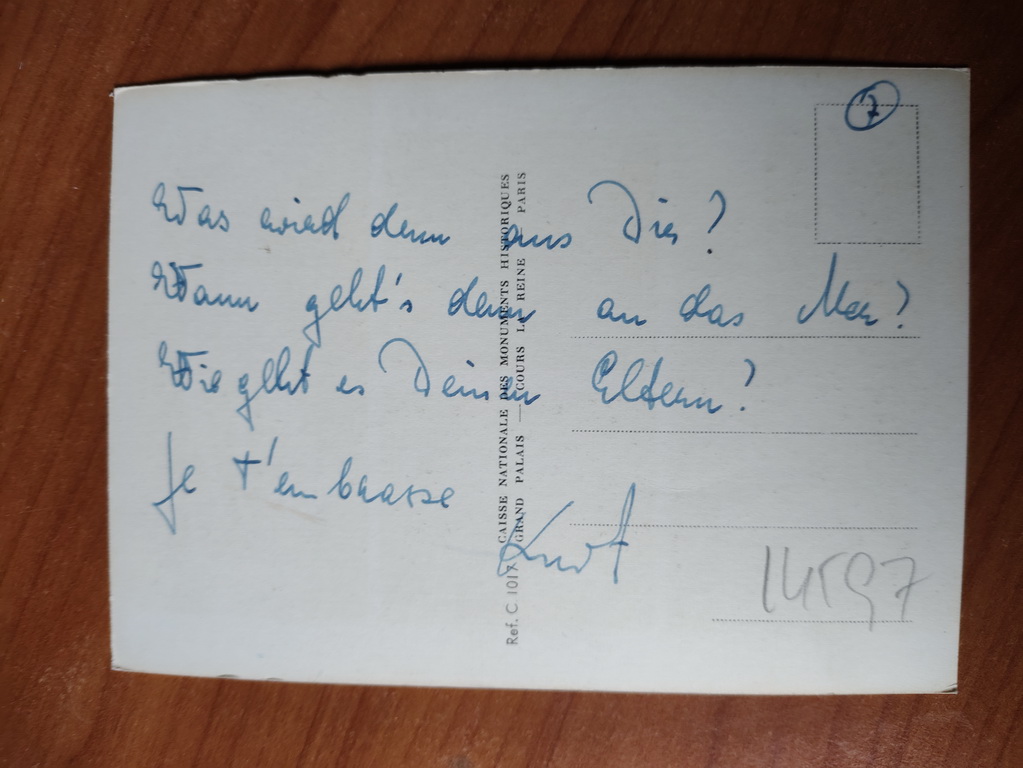 7
Was wird denn aus Dir?
Wann geht's denn an das Meer?
Wie geht es Deinen Eltern?
Je t'embrasse
Kurt
Ref. C 1017
CAISSE NATIONALE DES MONUMENTS HISTORIQUES
GRAND PALAIS — COURS LA REINE PARIS
14597